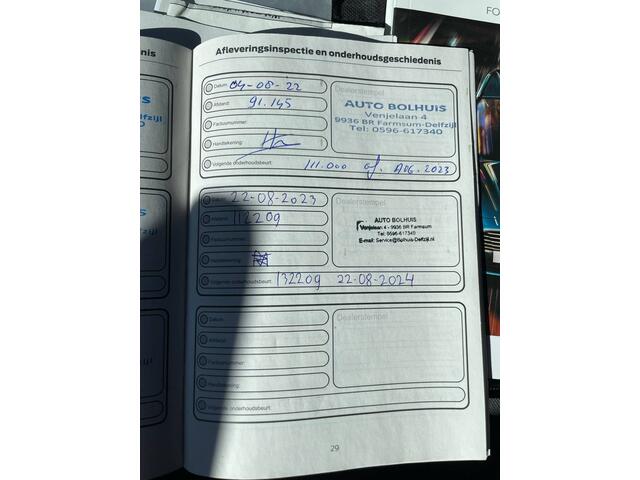 FO
nis
Afleveringsinspectie en onderhoudsgeschiedenis
Datum: 04-08-'22
Afstand: 91.145
Factuurnummer:
Handtekening:
Volgende onderhoudsbeurt: 111.000 of. AUG. 2023
Dealerstempel
AUTO BOLHUIS
Venjelaan 4
9936 BR Farmsum-Delfzijl
Tel: 0596-617340
Datum: 22-08-2023
Afstand: 112209
Factuurnummer:
Handtekening:
Volgende onderhoudsbeurt: 132209 22-08-2024
Dealerstempel
AUTO BOLHUIS
Venjelaan 4 - 9936 BR Farmsum
Tel: 0596-617340
E-mail: Service@Bolhuis-Delfzijl.nl
Datum:
Afstand:
Factuurnummer:
Handtekening:
Volgende onderhoudsbeurt:
Dealerstempel
29